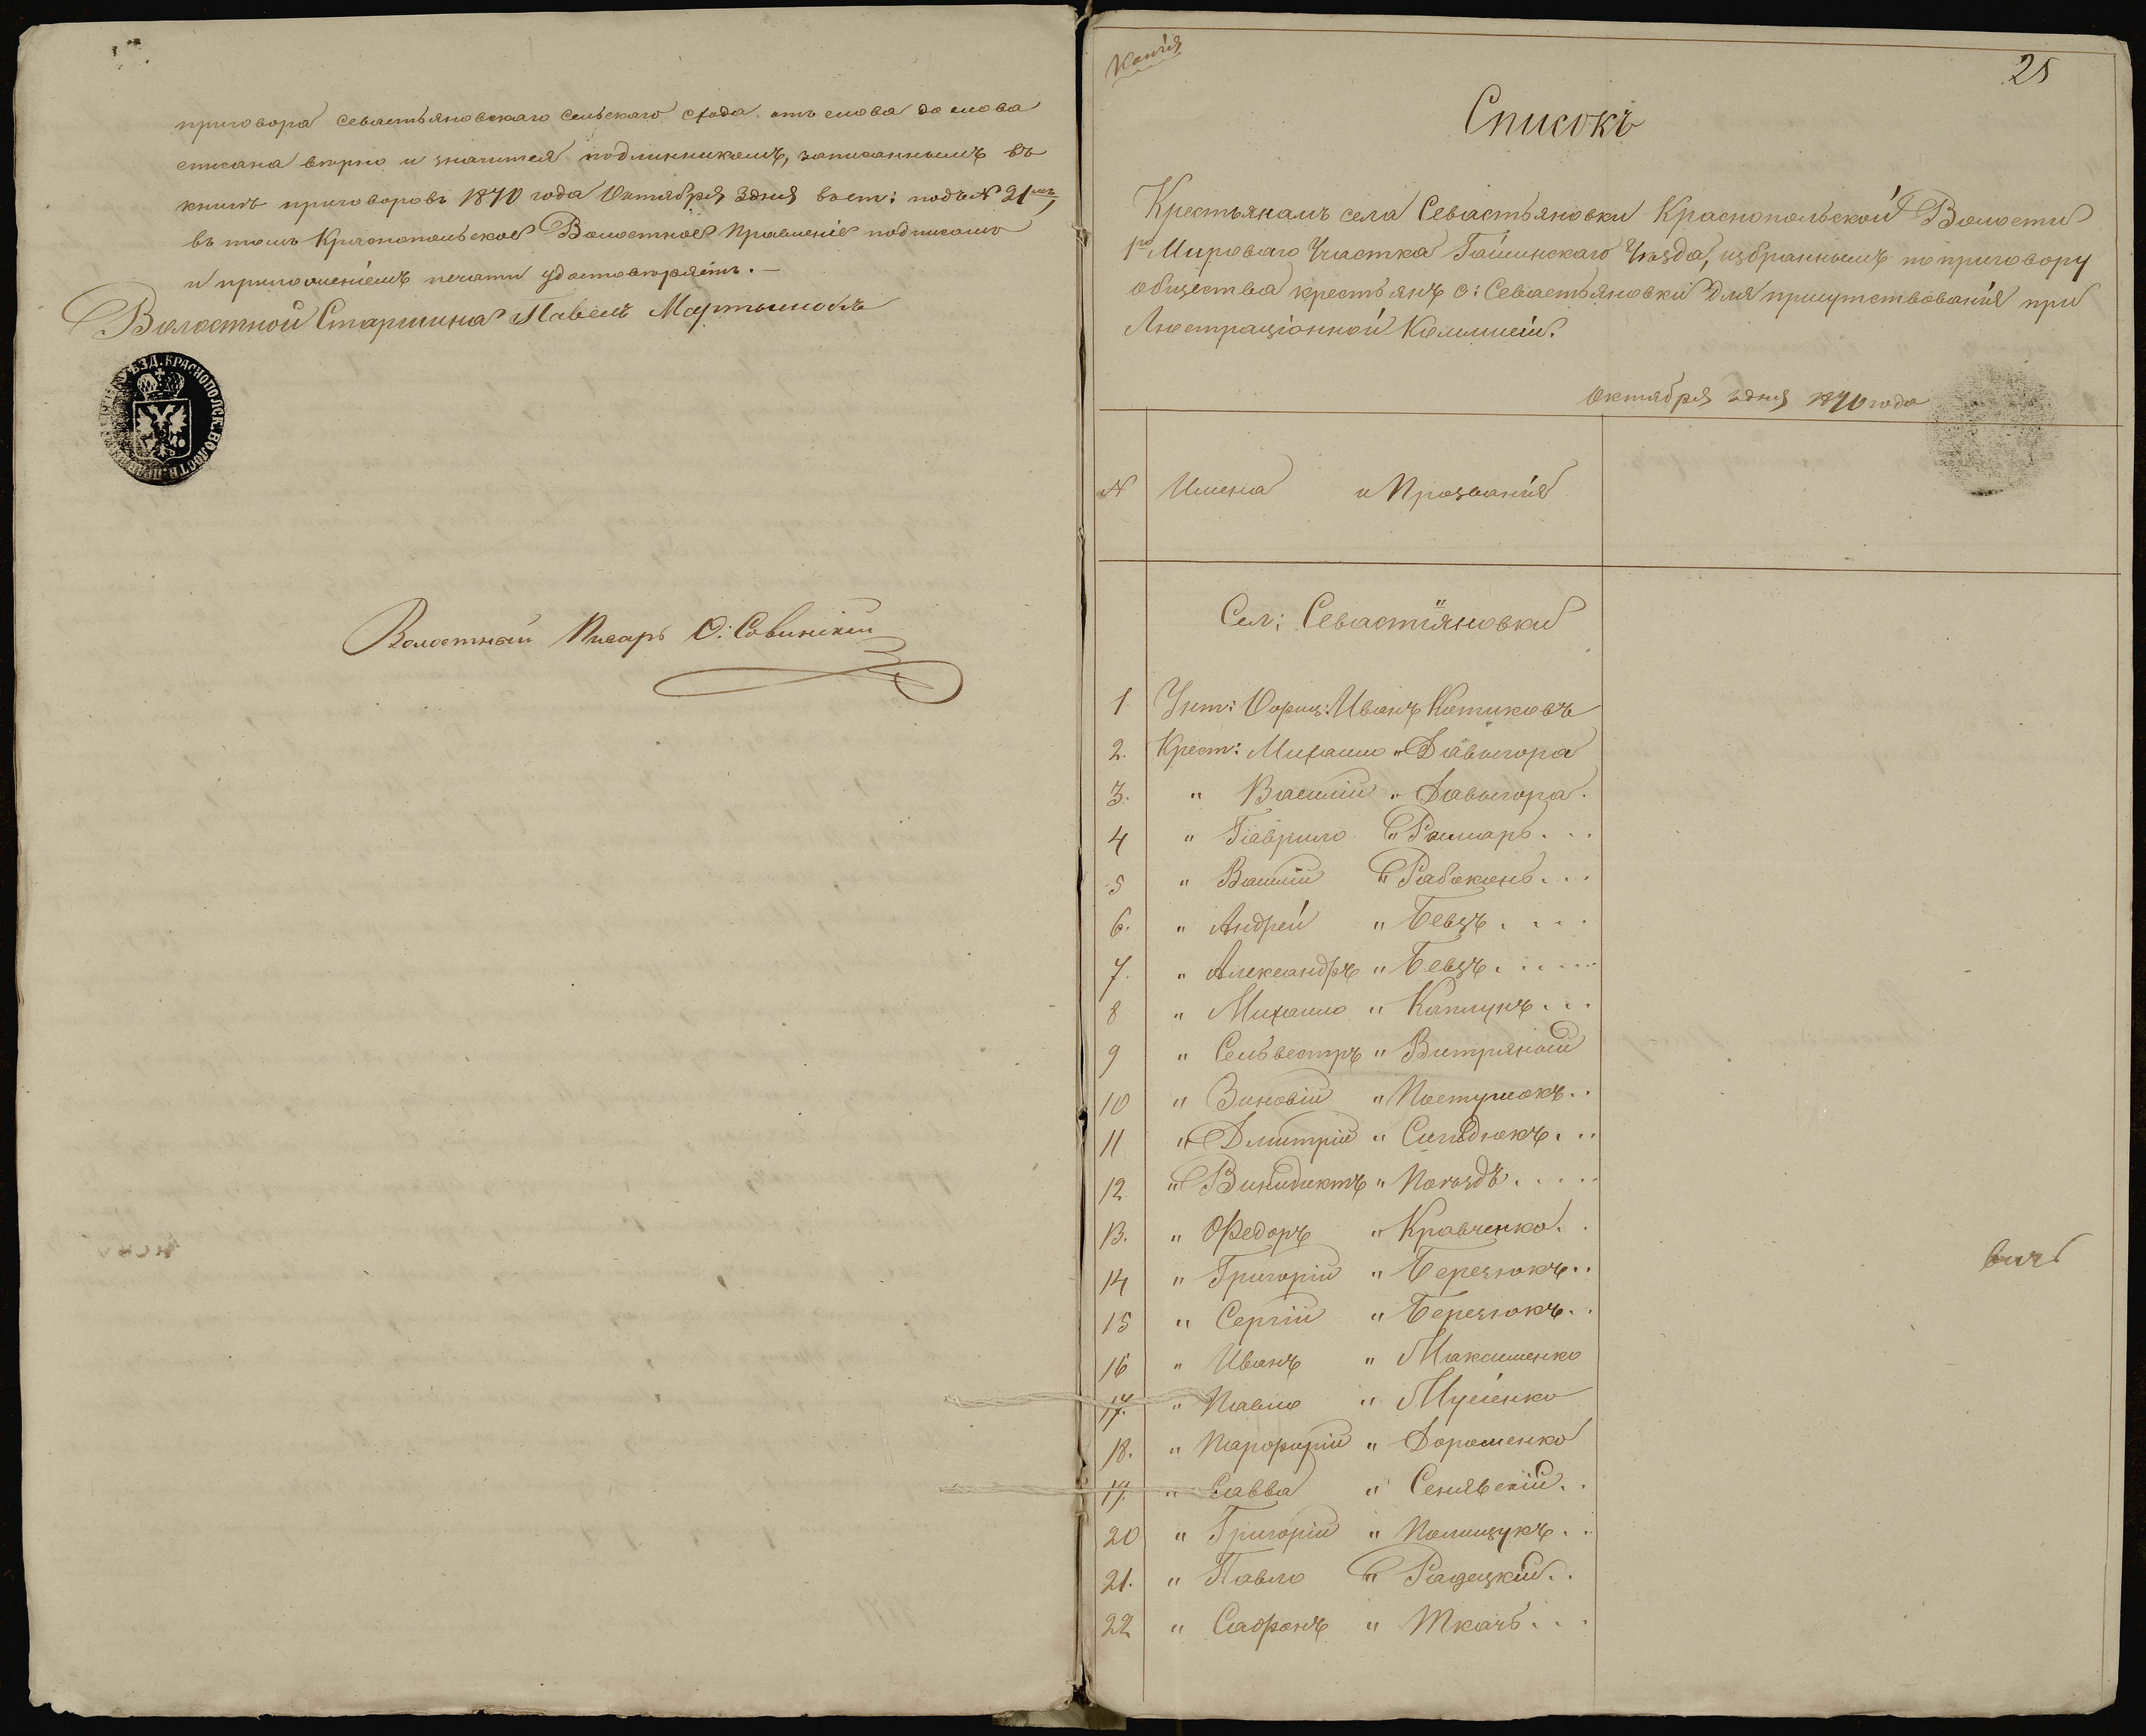 приговора Севастьяновскаго Сельскаго схода отъ слова до слова
списана вѣрно и значится подлинникомъ, записаннымъ въ
книгѣ приговоровъ 1870 года Октября 3 дня въ ст: подъ № 21мъ,
въ томъ Краснопольское Волостное Правленіе подписомъ
и приложеніемъ печати удостовѣряетъ.—
Волостной Старшина Павелъ Мартынюкъ
КРАСНОПОЛСК. ВОЛОСТН.
Волостной Писарь О: Совинскій
Копія
25
Списокъ
Крестьянамъ села Севастьяновки Краснопольской Волости
1го Мироваго Участка Гайсинскаго Уѣзда, избраннымъ по приговору
общества крестьянъ с: Севастьяновки для присутствованія при
Люстраціонной Коммисіи.
Октября 3 дня 1870 года
№ Имена и Прозванія
Сел: Севастіяновки
1. Унт: Офиц: Иванъ Котиковъ
2. Крест: Михаило " Давыгора
3. " Василій " Давыгора.
4 " Гаврило " Рымарь...
5 " Василій " Рабоконь...
6. " Андрей " Бевзъ....
7. " Александръ " Бевзъ......
8 " Михаило " Каплунъ...
9 " Сельвестръ " Витряный
10 " Зиновій " Постулюкъ..
11 " Дмитрій " Сигидюкъ...
12. " Винидиктъ " Погоздъ.....
13. " Федоръ " Кравченко..
14 " Григорій " Березюкъ..
15 " Сергій " Березюкъ..
16 " Иванъ " Максименко
17. " Павло " Мусіенко
18. " Парфирій " Дорошенко
19. " Савва " Сенявскій..
20 " Григорій " Полищукъ..
21. " Павло " Радецкій..
22 " Сафронъ " Ткачъ...
вичъ